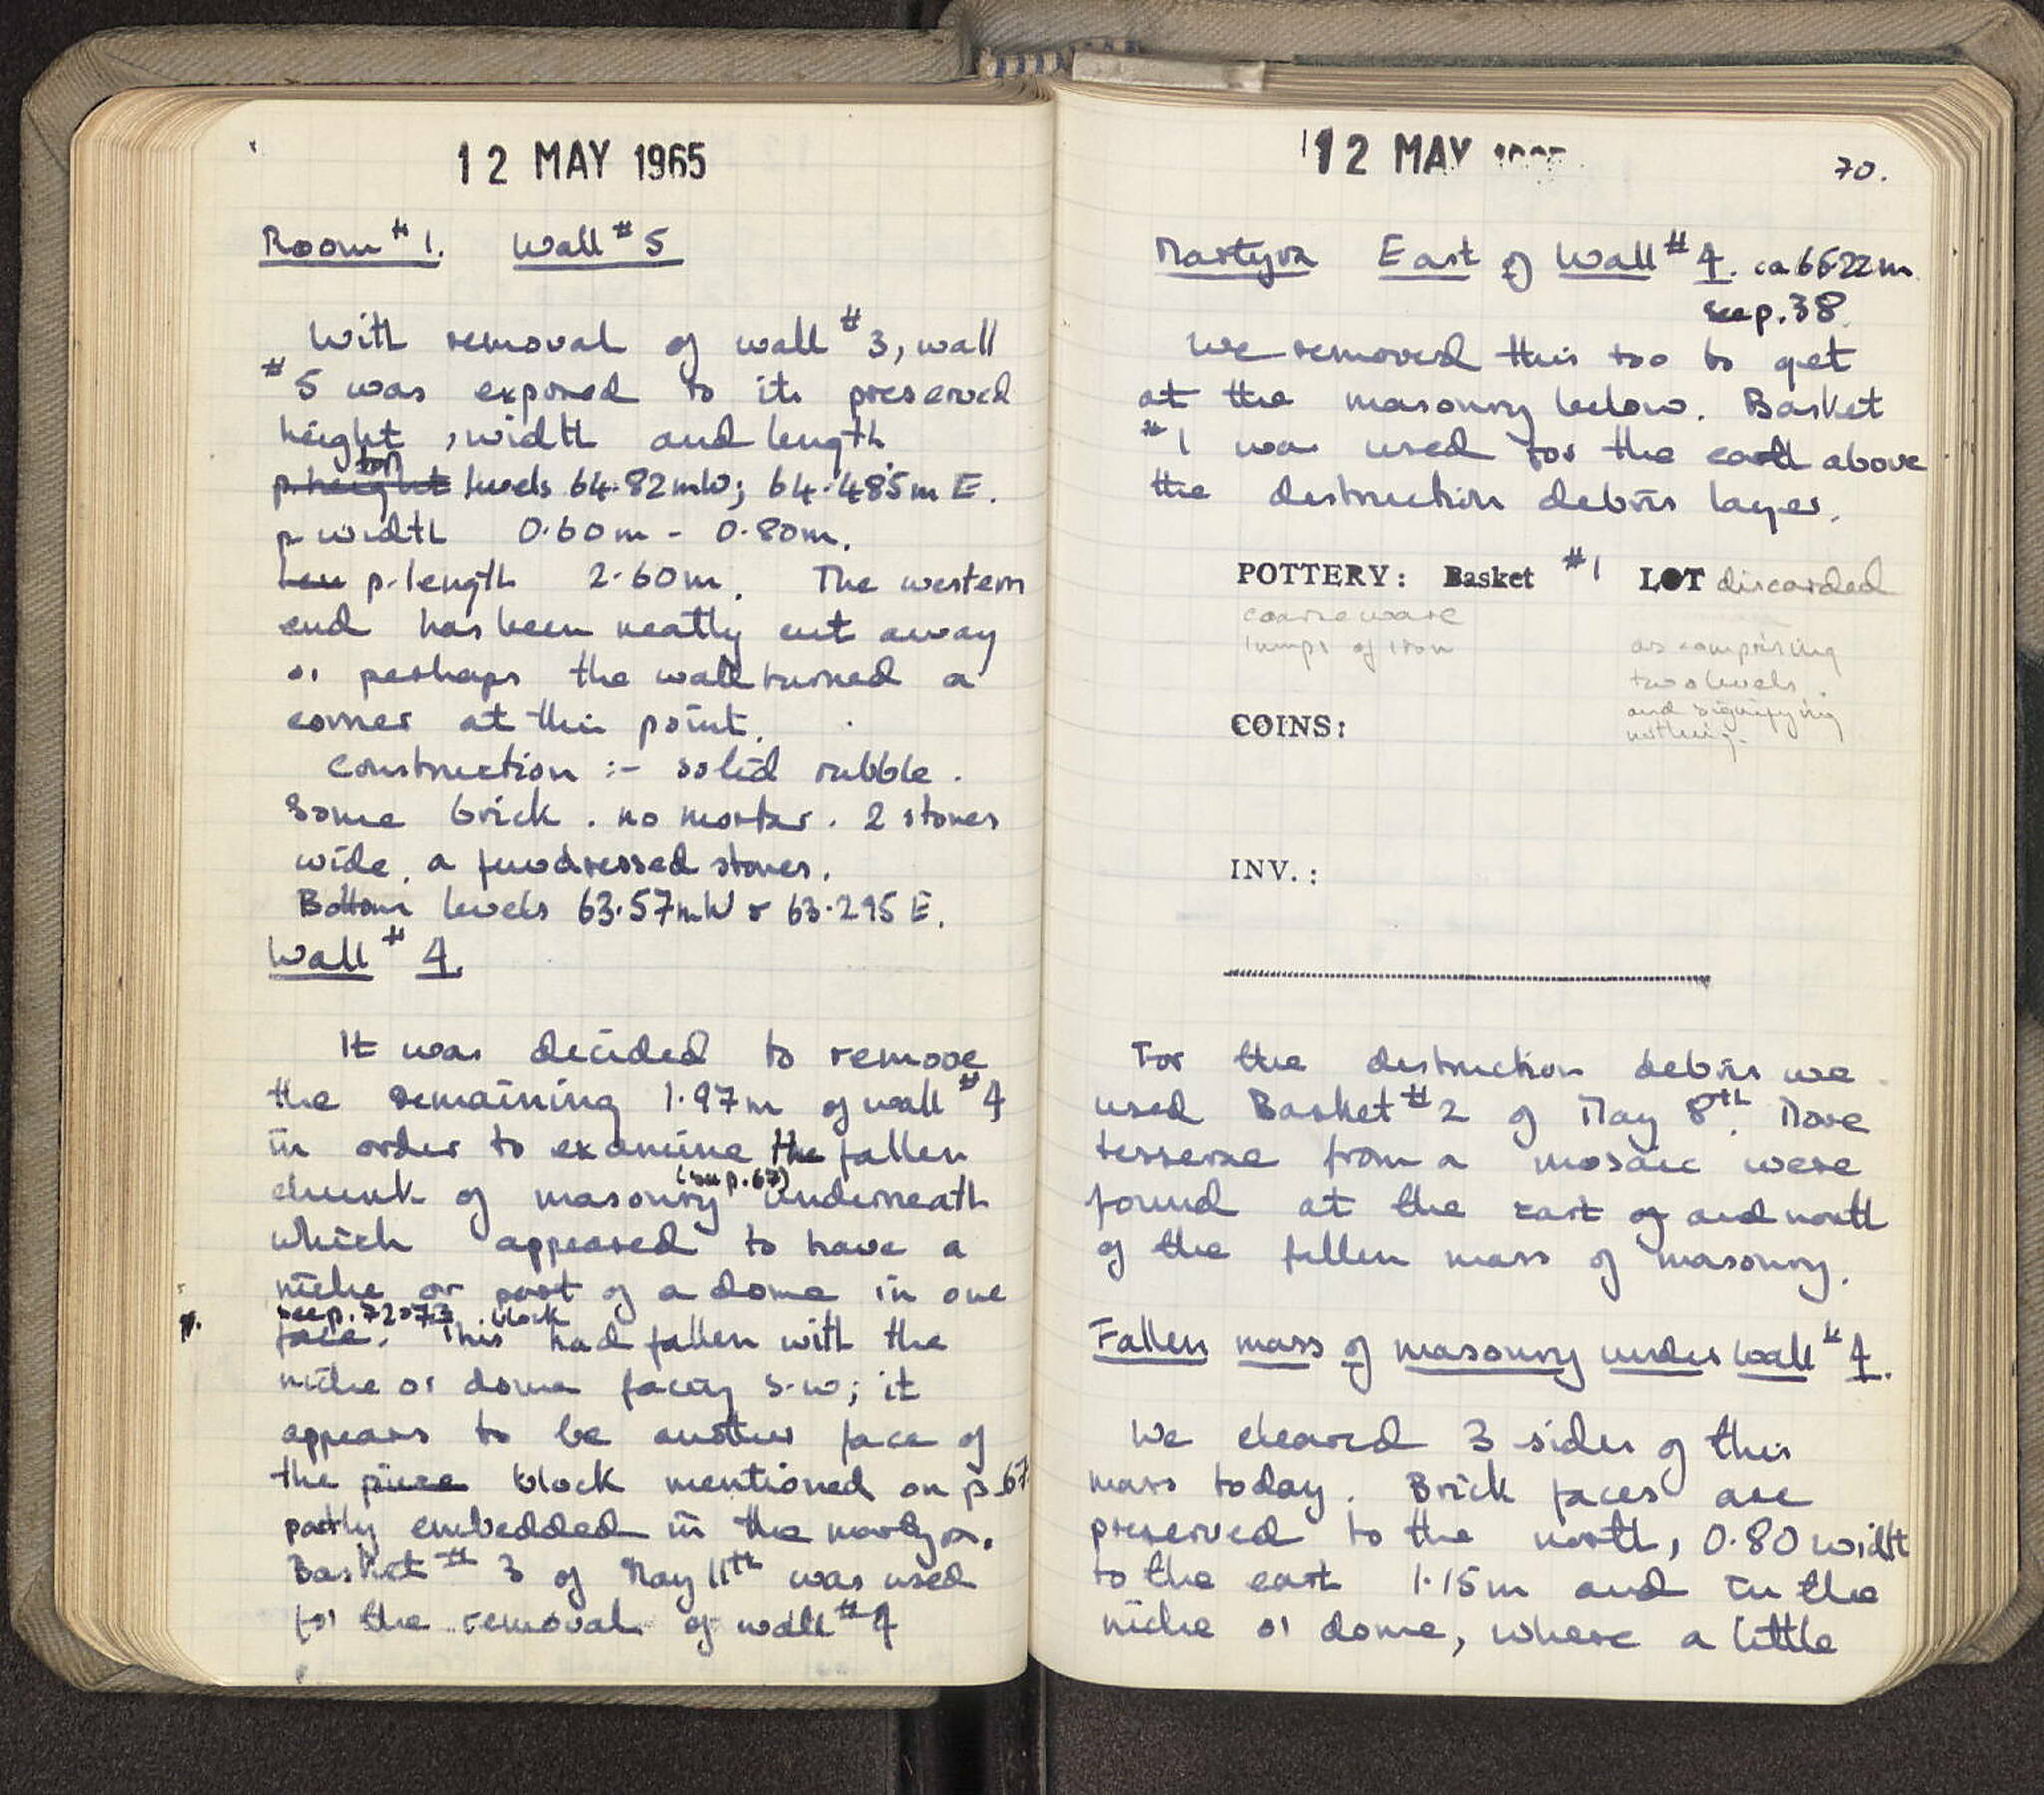 12 MAY 1965
Room #1. Wall #5
With removal of wall #3, wall
#5 was exposed to its preserved
height, width and length.
p. height top levels 64.82mW; 64.485m E.
p width 0.60m - 0.80m.
Len p. length 2.60m. The western
end has been neatly cut away
or perhaps the wall turned a
corner at this point.
Construction :- solid rubble.
Some brick. no mortar. 2 stones
wide. a few dressed stones.
Bottom levels 63.57mW & 63.295 E.
Wall #4.
It was decided to remove
the remaining 1.97m of wall #4
in order to examine the fallen
chunk of masonry (see p.67) underneath
which appeared to have a
niche or part of a dome in one
face. see p. 72 This block had fallen with the
niche or dome facing S.W; it
appears to be another face of
the piece block mentioned on p.67
partly embedded in the martyra.
Basket #3 of May 11th was used
for the removal of wall #4
12 MAY
70.
Martyra East of Wall #4. ca 65.22m
see p.38.
We removed this too to get
at the masonry below. Basket
#1 was used for the earth above
the destruction debris layer.
POTTERY: Basket #1 LOT discarded
coarse ware
lumps of iron
as comprising
two levels.
and signifying
nothing.
COINS:
INV.:
For the destruction debris we
used Basket #2 of May 8th. More
tesserae from a mosaic were
found at the east of and north
of the fallen mass of masonry.
Fallen mass of masonry under wall #4.
We cleared 3 sides of this
mass today. Brick faces are
preserved to the north, 0.80 width
to the east 1.15m and in the
niche or dome, where a little